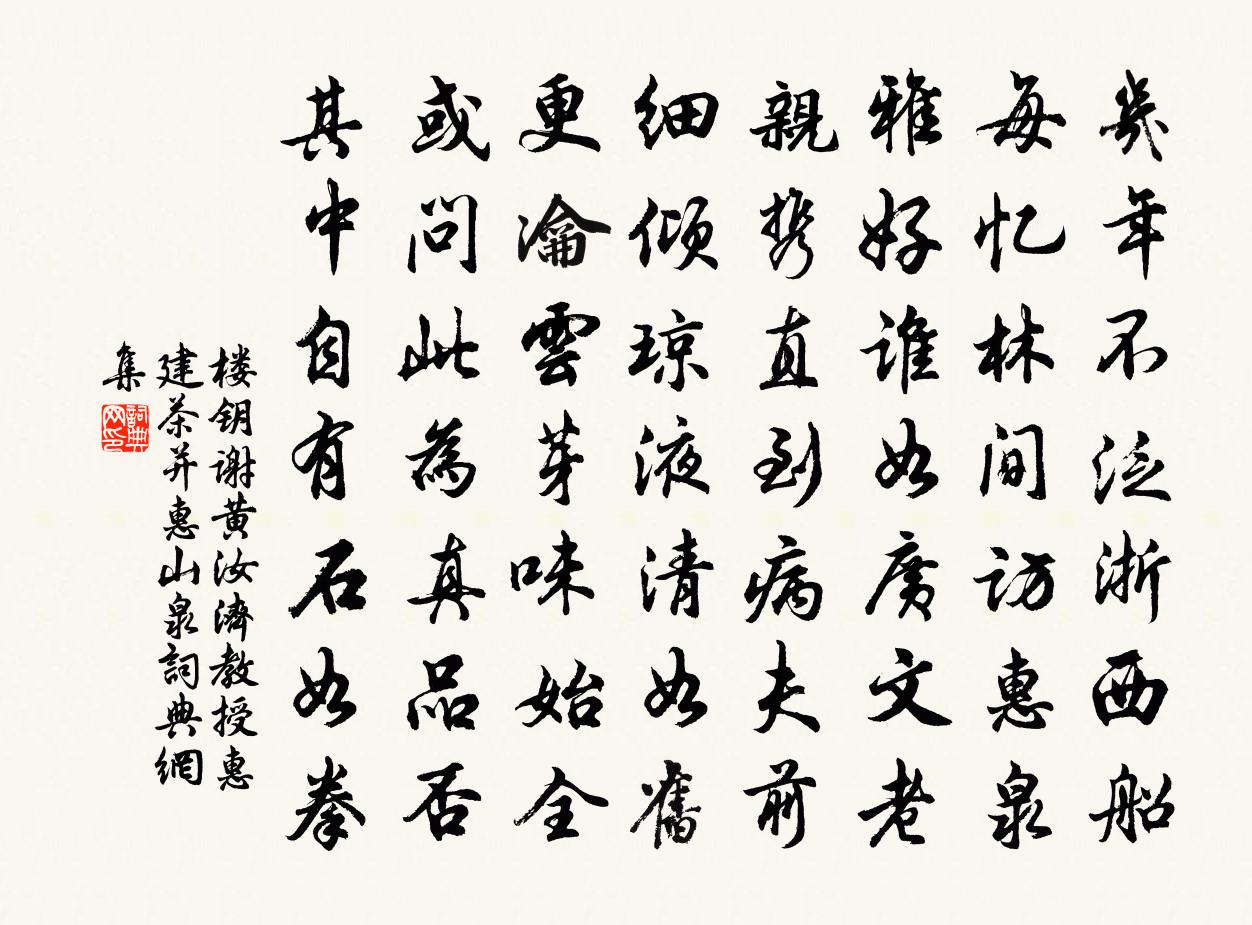 幾年不泛浙西船
每忆林间訪惠泉
雅好谁如廣文老
親携直到病夫前
细倾琼液清如舊
更瀹雲芽味始全
或问此為真品否
其中自有石如拳
楼钥谢黄汝濟教授惠
建茶并惠山泉詞典網
集
詞典
网印